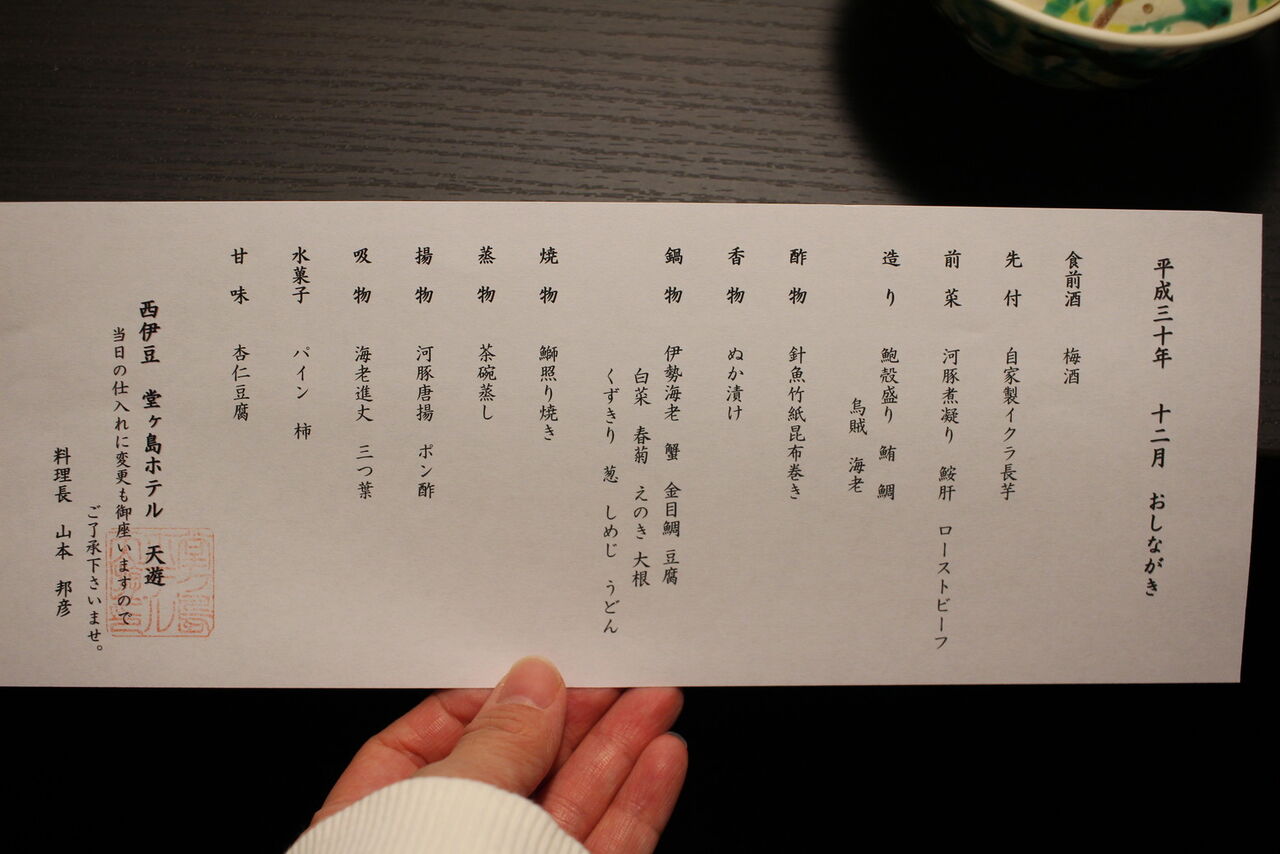 平成三十年　十二月　おしながき
食前酒　梅酒
先付　自家製イクラ長芋
前菜　河豚煮凝り　鮟肝　ローストビーフ
造り　鮑殻盛り　鮪　鯛
烏賊　海老
酢物　針魚竹紙昆布巻き
香物　ぬか漬け
鍋物　伊勢海老　蟹　金目鯛　豆腐
白菜　春菊　えのき　大根
くずきり　葱　しめじ　うどん
焼物　鰤照り焼き
蒸物　茶碗蒸し
揚物　河豚唐揚　ポン酢
吸物　海老進丈　三つ葉
水菓子　パイン　柿
甘味　杏仁豆腐
西伊豆　堂ヶ島ホテル　天遊
当日の仕入れに変更も御座いますので
ご了承下さいませ。
料理長　山本　邦彦